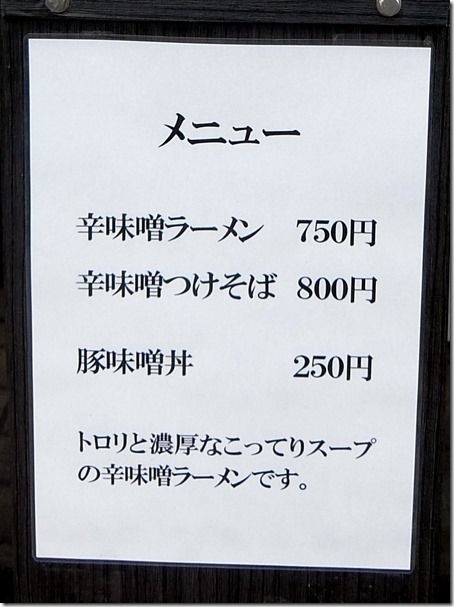 メニュー
辛味噌ラーメン 750円
辛味噌つけそば 800円
豚味噌丼 250円
トロリと濃厚なこってりスープ
の辛味噌ラーメンです。